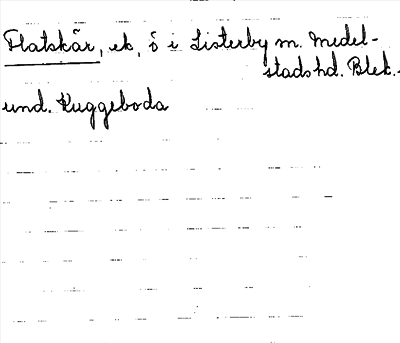 Flatskär, ek, ö i Listerby m. Medel-
stads hd. Blek.
und. Kuggeboda